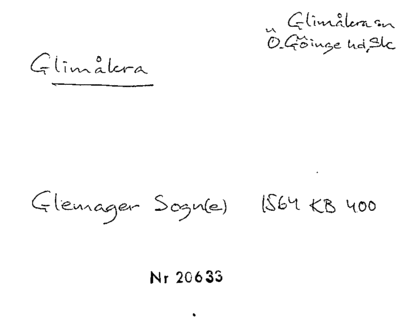 Glimåkra sn
Ö. Göinge hd, Sk
Glimåkra
Glemager Sogn(e) 1564 KB 400
Nr 20633